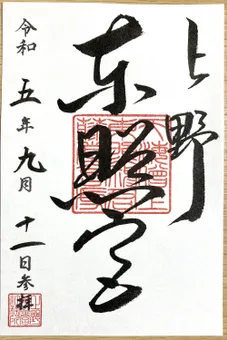 上野
東照宮
令和五年九月十一日参拝